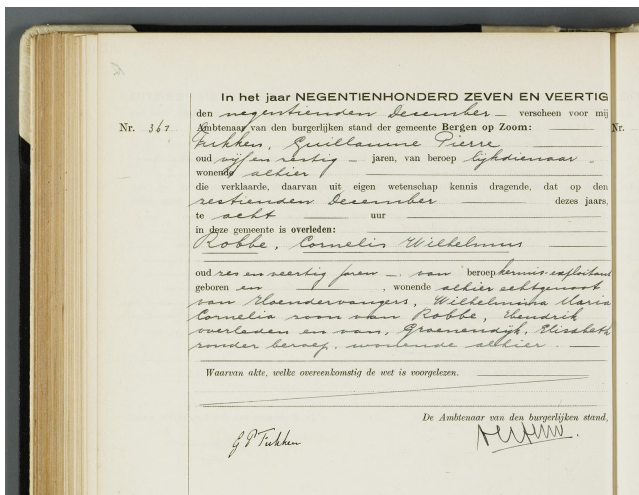 In het jaar NEGENTIENHONDERD ZEVEN EN VEERTIG
den negentienden December — verscheen voor mij
Nr. 367 Ambtenaar van den burgerlijken stand der gemeente Bergen op Zoom: Nr.
Fukken, Guillaume Pierre
oud vijf en zestig — jaren, van beroep lijkdienaar
wonende alhier
die verklaarde, daarvan uit eigen wetenschap kennis dragende, dat op den
zestienden December dezes jaars,
te acht uur
in deze gemeente is overleden:
Robbe, Cornelis Wilhelmus
oud zes en veertig jaren —, van beroep kermis-exploitant
geboren en , wonende alhier echtgenoot
van Hoendervangers, Wilhelmina Maria
Cornelia zoon van Robbe, Hendrik
overleden en van, Groenendijk, Elisabeth
zonder beroep, wonende alhier.
Waarvan akte, welke overeenkomstig de wet is voorgelezen.
De Ambtenaar van den burgerlijken stand,
G P Fukken